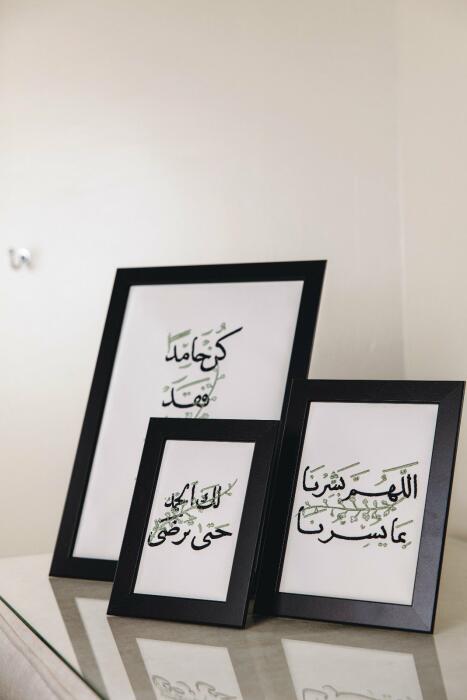 كُن حَامِدًا
فَقَدْ
لك الحمد
حتى ترضى
اللَّهُمَّ بَشِّرْنَا
بِمَا يَسُرُّنَا